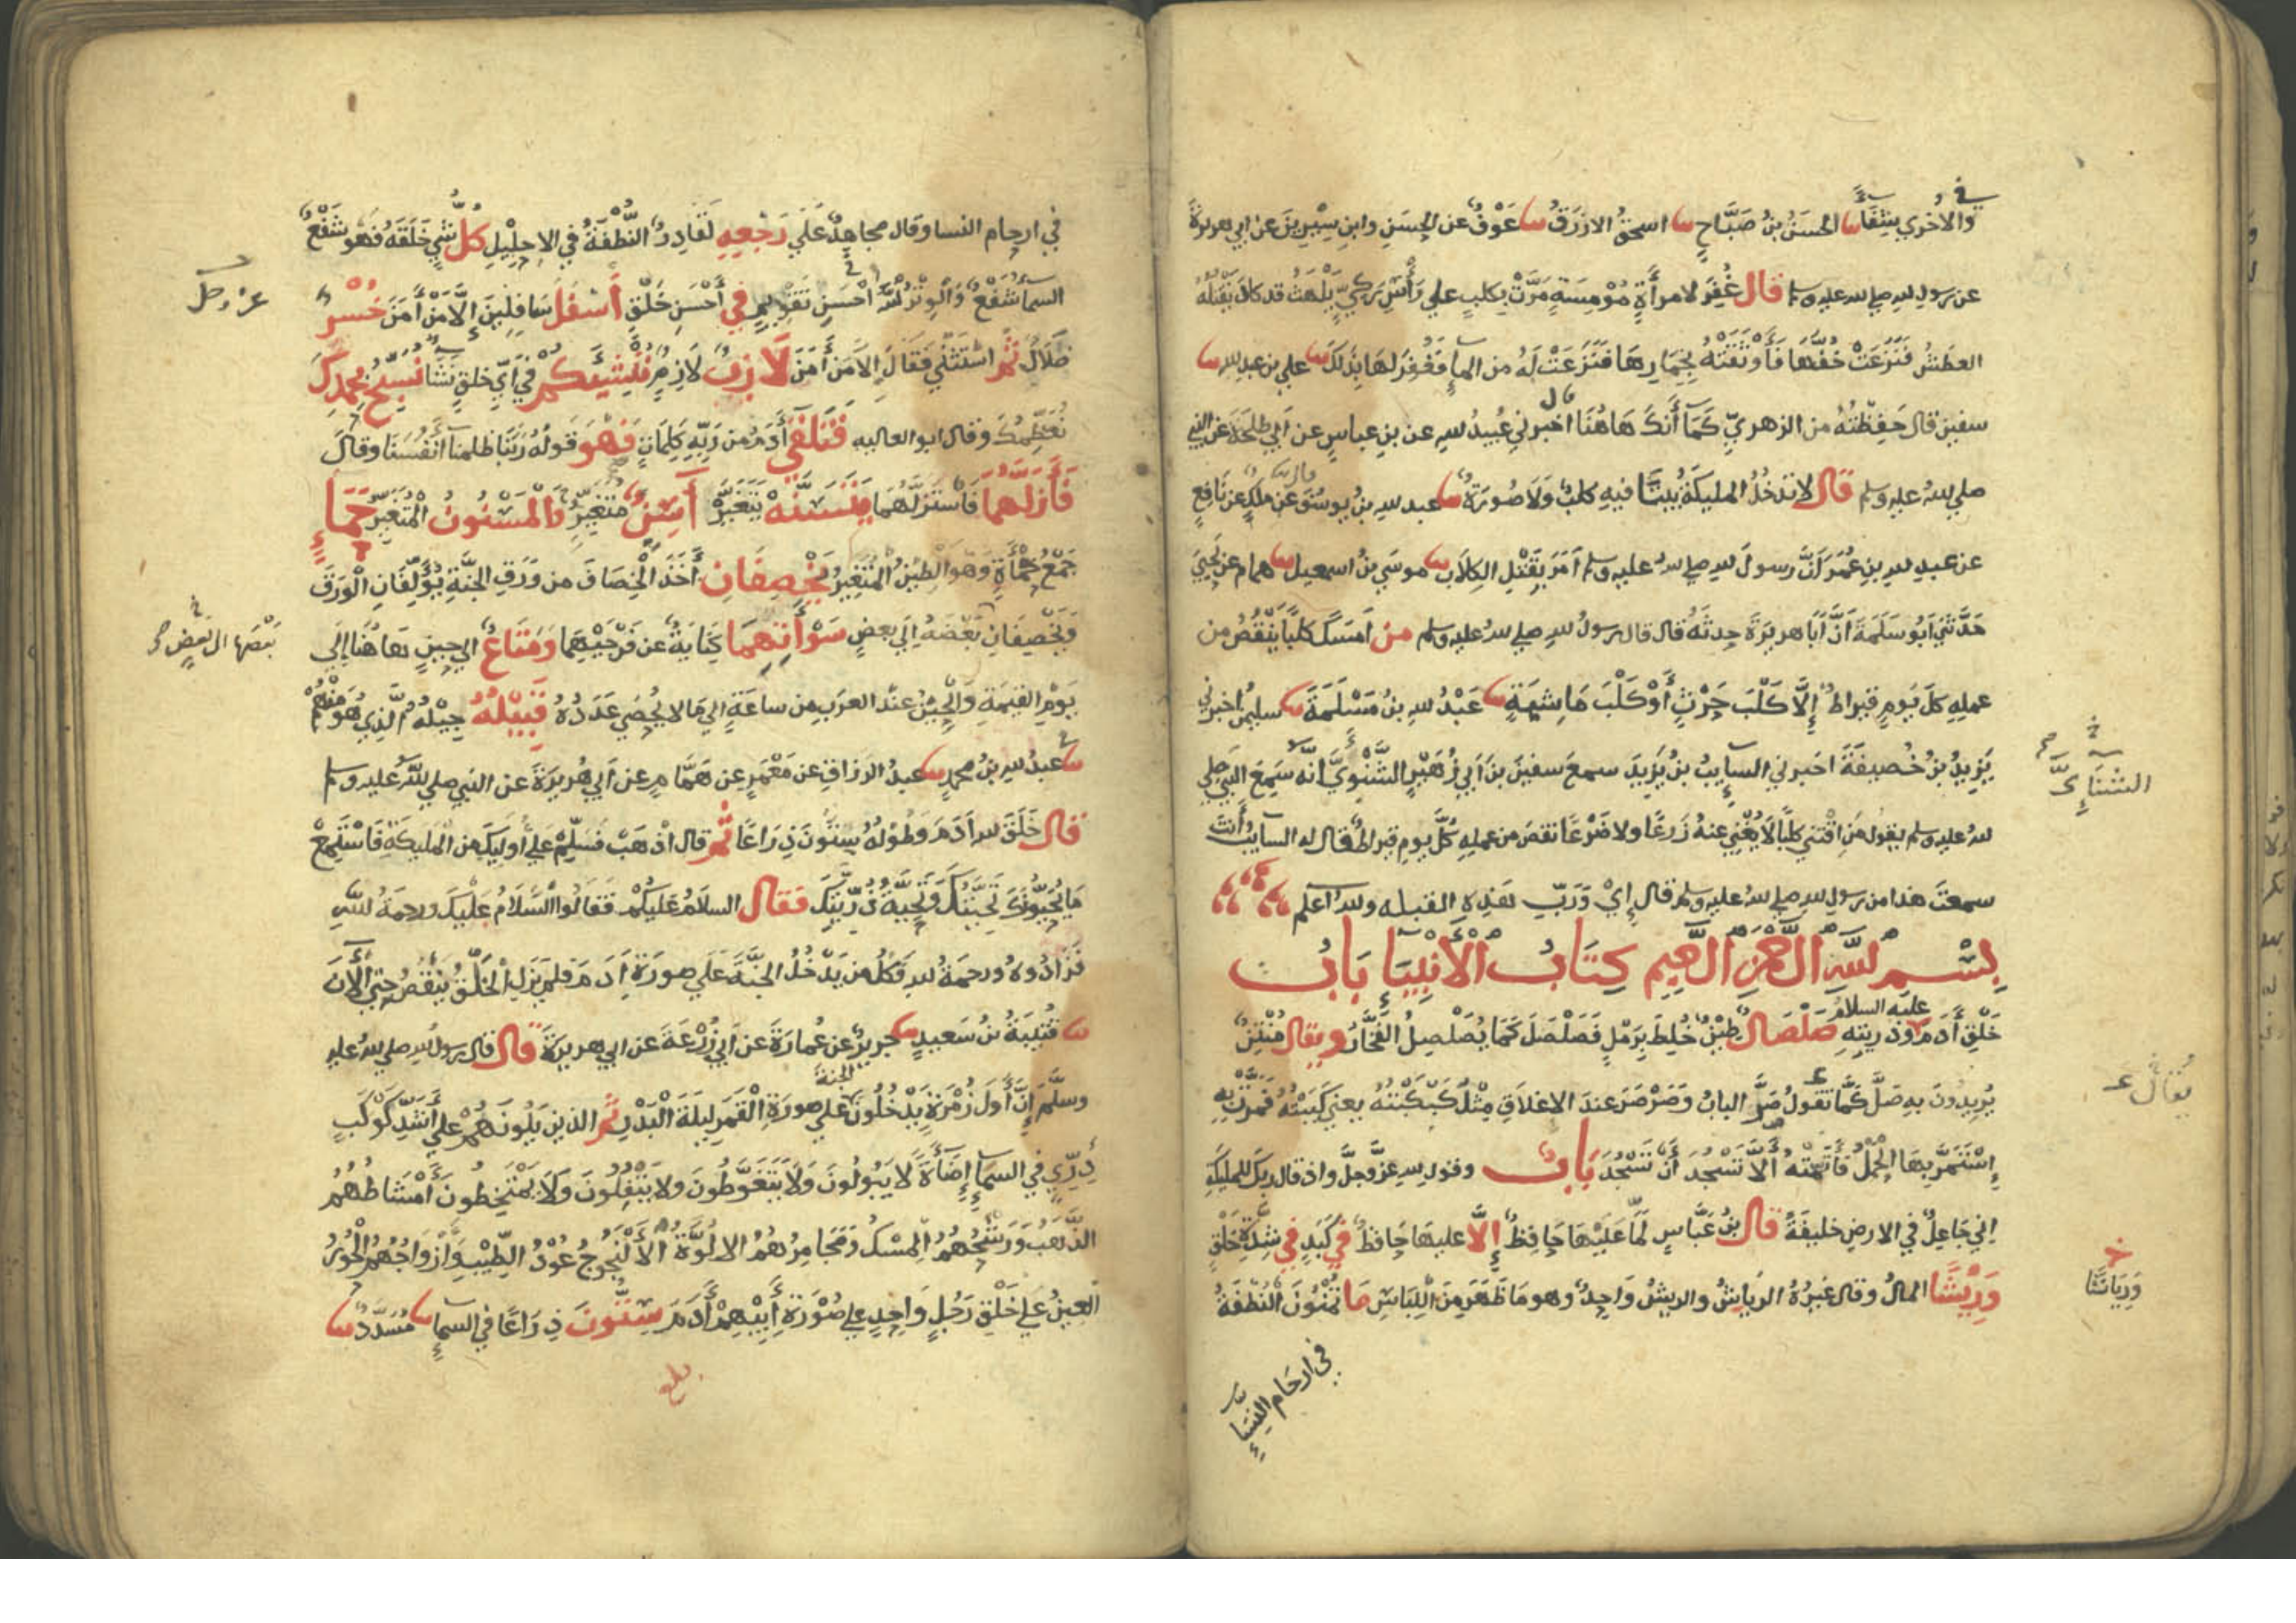 والأخري شفاء نا الحسن بن صباح نا اسحق الازرق نا عوف عن الحسن وابن سيرين عن ابي هريرة
عن رسول الله صلى الله عليه وسلم قال غُفِرَ لامرأةٍ مُوْمِسَةٍ مَرَّتْ بكلبٍ علي رَأْسِ رَكيٍّ يَلْهَثُ قد كاد يَقْتُلُهُ
العطَشُ فَنَزَعَتْ خُفَّهَا فَأَوْثَقَتْهُ بِخِمَارِهَا فَنَزَعَتْ لَهُ من الماءِ فَغُفِرَ لَهَا بِذَلكَ نا علي بن عبد الله نا
سفين قال حَفِظْتُهُ من الزهريِّ كَمَا أَنَّكَ هَاهُنَا قال اخبرني عُبيدُ الله عن بن عباسٍ عن أبي طلحَةَ عن النبي
صلى الله عليه وسلم قال لا تدخُلُ المليكةُ بيتًا فيهِ كلبٌ وَلَا صُورَةٌ نا عبد الله بنُ يوسُفَ قال نا ملكٌ عن نَافعٍ
عن عبدِ الله بنِ عُمَرَ أنَّ رسولَ الله صلى الله عليه وسلم أمَرَ بِقَتْلِ الكِلَابِ نا موسَي بنُ اسمعيل نا همام عن يَحيَي
حَدَّثَنِي أبُو سَلَمَةَ أنَّ أبَا هريرَةَ حدثَهُ قال قال رسولُ الله صلى الله عليه وسلم من أمسَكَ كلبًا يَنْقُصُ من
عملِهِ كلَّ يَومٍ قيراطٌ إِلَّا كَلْبَ حَرْثٍ أَوْ كَلْبَ مَاشِيَةٍ نا عَبْدُ الله بنُ مَسْلَمَةَ نا سليمن اخبرني
يَزِيدُ بنُ خُصيفَةَ اخبرني السايِبُ بنُ يَزيدَ سمعَ سفينَ بنَ أبي زُهَيْرٍ الشَّنَوِيَّ انَّه سَمِعَ النبيَّ صلى
الله عليه وسلم يقولُ مَنِ اقْتنَي كلبًا لَا يُغْنِي عنهُ زَرعًا ولا ضَرْعًا نقصَ من عملِهِ كُلَّ يومٍ قيراطٌ فقال له السايبُ أَنْتَ
سمعتَ هذا من رسولِ الله صلى الله عليه وسلم قال إِيْ وَرَبِّ هذِهِ القبله والله اعلم
بِسْمِ اللهِ الرَّحْمَنِ الرَّحِيمِ كِتَابُ الْأَنْبِيَاءِ بَابُ
خَلْقِ أَدَمَ عليه السلام وذريتِهِ صَلْصَالٌ طِيْنٌ خُلِطَ بِرَمْلٍ فَصَلْصَلَ كَمَا يُصَلْصِلُ الفَخَّارُ ويقال مُنْتِنٌ
يُرِيدُونَ بِهِ صَلَّ كَمَا تقُولُ صَرَّ البابُ وَصَرْصَرَ عندَ الاغلَاقِ مِثْلُ كَبْكَبْتُهُ يعني كَبَبْتُهُ فَمَرَّتْ بِهِ
إِسْتَمَرَّ بِهَا الحَمْلُ فَأَتَمَّتْهُ أَلَّا تَسْجُدَ أَنْ تَسْجُدَ بَابُ وقول الله عزَّ وجلَّ واذ قال ربك للمليكَةِ
إِني جَاعِلٌ في الارضِ خليفَةً قال بنُ عَبَّاسٍ لَمَّا عَلَيْهَا حَافِظٌ إِلَّا عليهَا حَافظٌ في كَبَدٍ في شِدَّةِ خَلْقٍ
وَرِيْشًا المالُ وقال غيرُهُ الرياشُ والريشُ وَاحِدٌ وهو مَا ظَهَرَ مِنَ اللِّبَاسِ مَا تُمْنُونَ النُّطْفَةُ
في ارحَام النسَاءِ
الشَنَائِيَّ
يُقَالُ
وَرِيَاشًا
في ارحام النسا وقال مجاهدٌ عَلَي رَجْعِهِ لَقَادِرٌ النُّطْفَةُ في الإحْلِيْلِ كُلُّ شَيءٍ خَلَقَهُ فَهُوَ شَفْعٌ
السماءُ شَفْعٌ وَالْوِتْرُ اللهُ أَحْسَنِ تَقْوِيمٍ في أَحْسَنِ خَلْقٍ أَسْفَلَ سَافِلِينَ إِلَّا مَنْ أَمَنَ خُسْرٍ
ضلَالٌ ثمَّ اسْتَثْنَي فَقَالَ إِلَّا مَنْ أَمَنَ لَازِبٌ لَازِمٌ نُنْشِئَكُمْ في أَيِّ خلقٍ نَشَاءُ نُسَبِّحُ بِحَمْدِكَ
نُعَظِّمُكَ وقال ابو العاليه فَتَلَقَّي أَدَمُ مِن رَبِّهِ كَلِمَاتٍ فَهُوَ قَولُهُ رَبَّنَا ظلمنَا أَنْفُسَنَا وقالَ
فَأَزَلَّهُمَا فَاسْتَزَلَّهُمَا يَتَسَنَّهْ يَتَغَيَّرْ أَسِنٌ مُتَغَيِّرٌ وَالْمَسْنُونُ الْمُتَغَيِّرُ حَمَإٍ
جَمْعُ حَمْأَةٍ وَهُوَ الطِينُ الْمُتَغَيِّرُ يَخْصِفَانِ أَخَذَ الْخِصَافَ مِن وَرَقِ الجَنَّةِ يُؤَلِّفَانِ الْوَرَقَ
وَيَخْصِفَانِ بَعْضَهُ إِلَي بعضٍ سَوْأَتِهِمَا كِنَايَةٌ عن فَرْجَيْهِمَا وَمَتَاعٌ الي حِينٍ هَاهُنَا إِلَي
يَوْمِ القيمَةِ وَالْحِيْنُ عنْدَ العرَبِ مِن ساعَةٍ الي مَا لا يُحْصَي عَدَدُهُ قَبِيْلُهُ جِيْلُهُ الَّذِي هُوَ مِنْهُمْ
نا عبدُ الله بنُ محمدٍ نا عبدُ الرزاقِ عن مَعْمَرٍ عن هَمَّامٍ عن أبي هُريرَةَ عن النبي صلى الله عليه وسلم
قال خَلَقَ الله أَدَمَ وطولُهُ سِتُّونَ ذِرَاعًا ثُمَّ قال اذْهَبْ فَسَلِّمْ علَي أوليكَ مِن المليكَةِ فَاسْتَمِعْ
مَا يُحَيُّونَكَ تَحِيَّتُكَ وَتَحِيَّةُ ذُرِّيَّتِكَ فَقَال السلَامُ عَلَيكُمْ فَقَالُوا السَّلَامُ عَلَيْكَ ورحمَةُ اللهِ
فَزَادُوهُ ورحمَةُ الله فَكُلُّ مَن يَدْخُلُ الجنَّةَ عَلَي صورَةِ أَدَمَ فلم يَزَلِ الْخَلْقُ يَنْقُصُ حَتَّي الْأَنَ
نا قُتيبَةُ بنُ سَعيدٍ نا جريرٌ عن عُمارَةَ عن أَبي زُرْعَةَ عن ابي هريرَةَ قال قال رسولُ الله صلى الله عليه
وسلَّمَ إِنَّ أَوَلَ زُمْرَةٍ يَدْخُلُونَ الجنةَ علَي صورَةِ القمَرِ ليلَةَ البَدْرِ ثُمَّ الذين يَلُونَهُمْ علَي أَشَدِّ كَوْكَبٍ
دُرِّيٍّ في السمَاءِ إِضَاءَةً لَا يَبُولُونَ وَلَا يَتَغَوَّطُونَ ولا يَتْفِلُونَ وَلَا يَمْتَخِطُونَ أَمْشَاطُهُمُ
الذَّهَبُ وَرَشْحُهُمُ المِسْكُ وَمَجَامِرُهُمُ الالُوَّةُ الْأَلَنْجُوجُ عُوْدُ الطِّيْبِ وَأَزْوَاجُهُمُ الْحُورُ
العِينُ علي خَلْقِ رَجُلٍ وَاحِدٍ علي صُوْرَةِ أَبِيْهِمْ أَدَمَ سِتُّونَ ذِرَاعًا في السماءِ نا مُسَدَّدٌ نا
بلغ
عز وجل
بَعْضَهَا الى بَعْضٍ